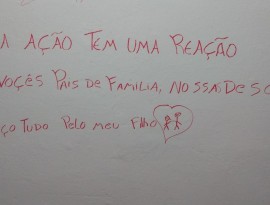 A AÇÃO TEM UMA REAÇÃO
VOÇÊS PAIS DE FAMILIA, NOSSA DE SO
ÇO TUDO PELO MEU FILHO